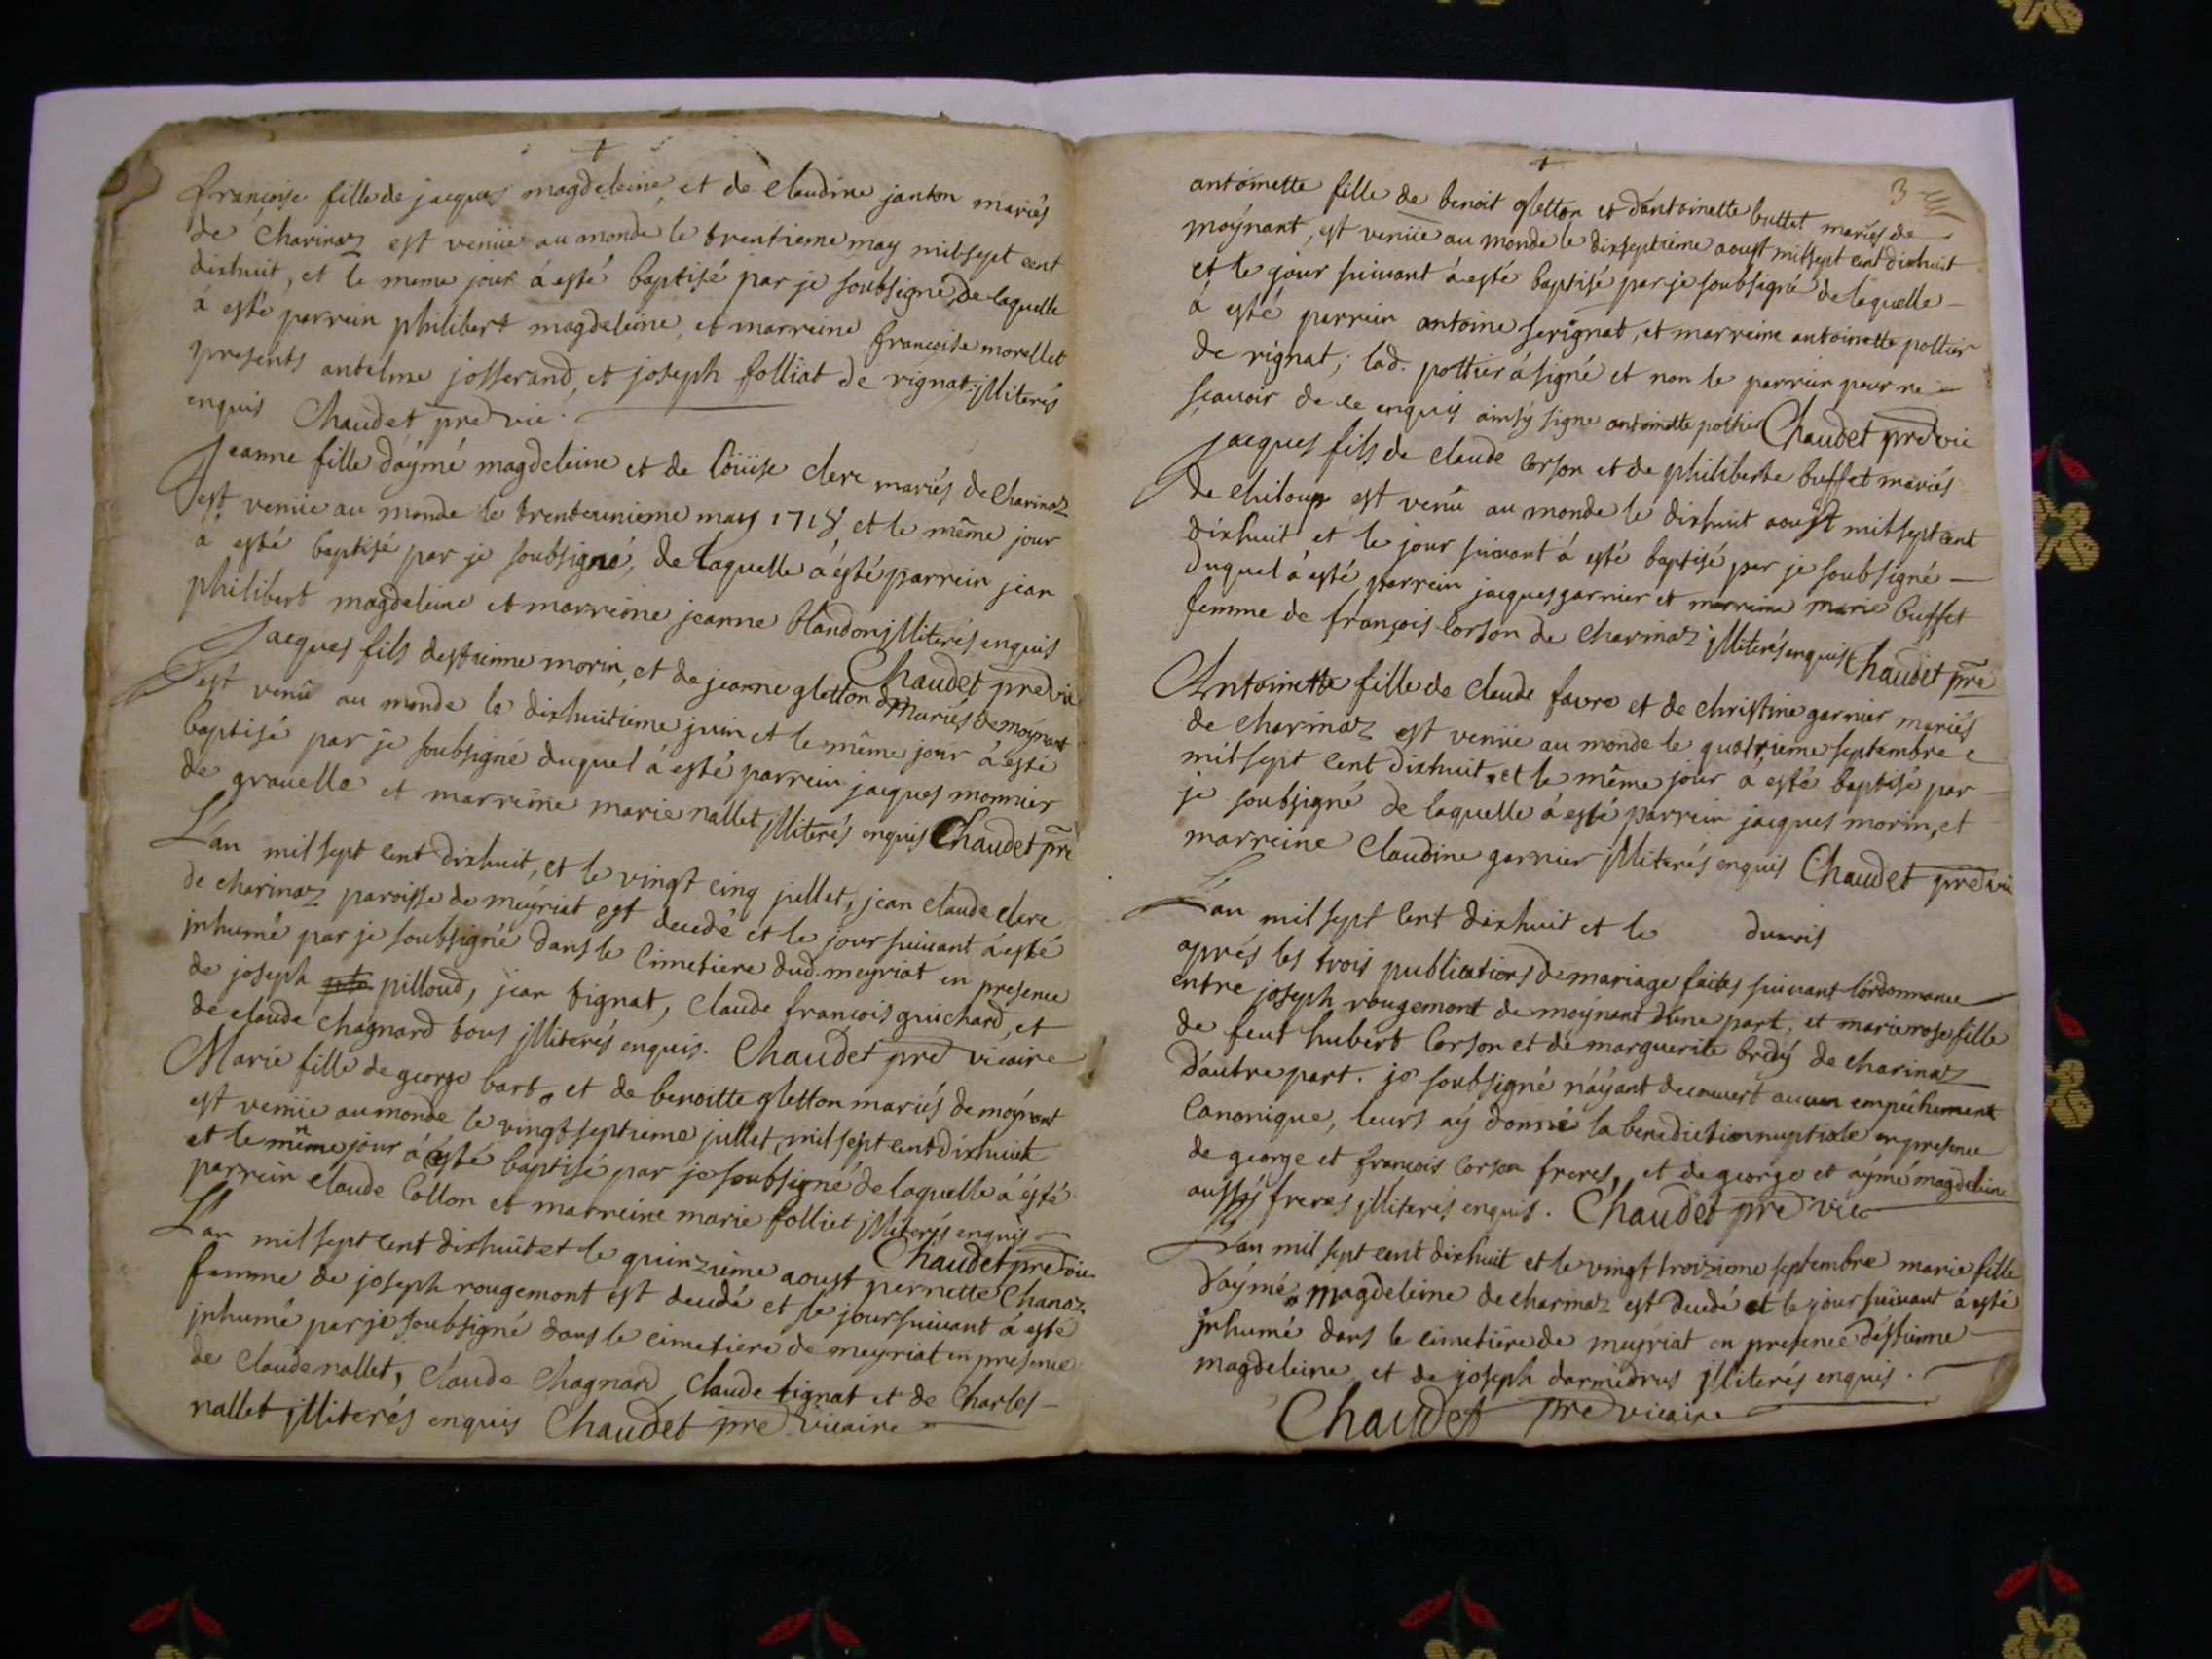 françoise fille de jacques magdeleine, et de claudine janton mariés
de charinaz est venüe au monde le trentieme may mil sept cent
dixhuit, et le meme jour á esté baptisé par je soubsigné, de laquelle
á esté parrein philibert magdeleine, et marreine francoise morellet
presents antelme josserand, et joseph folliat de rignat jlliterés
enquis Chaudet pre vic.
Jeanne fille d'aýmé magdeleine et de loüise clerc mariés de charinaz
est venüe au monde le trenteunieme may 1718, et le même jour
á esté baptisé par je soubsigné, de laquelle á esté parrein jean
philibert magdeleine et marreine jeanne blandon jlliterés enquis
Chaudet pre vic
Jacques fils d'estienne morin, et de jeanne gletton mariés de moýnant
est venû au monde le dixhuitieme juin et le même jour á esté
baptisé par je soubsigné duquel á esté parrein jacques monnier
de grauelle et marreine marie nallet jlliterés enquis Chaudet pre
L'an mil sept cent dixhuit, et le vingt cinq jullet, jean claude clerc
de charinaz paroisse de meýriat est decedé et le jour suiuant á esté
jnhumé par je soubsigné dans le cimetiere dud. meyriat en presence
de joseph pilloud, jean tignat, claude francois guichard, et
de claude chagnard tous jlliterés enquis. Chaudet pre vicaire
Marie fille de george bart, et de benoitte gletton mariés de moýnant
est venüe au monde le vingt septieme jullet, mil sept cent dixhuit
et le même jour á esté baptisé par je soubsigné de laquelle á ésté
parrein claude collon et marreine marie folliet jlliterés enquis
Chaudet pre vic
L'an mil sept cent dixhuit et le quinzieme aoust pernette Chanaz
femme de joseph rougemont est decedé et le jour suiuant á esté
jnhumé par je soubsigné dans le cimetiere de meyriat en presence
de claude nallet, claude chagnard, claude tignat et de charles
nallet jlliterés enquis Chaudet pre vicaire
3
antoinette fille de benoit gletton et d'antoinette buttet mariés de
moýnant, est venüe au monde le dixseptieme aoust mil sept cent dixhuit
et le jour suiuant á esté baptisé par je soubsigné de laquelle
á esté parrein antoine serignat, et marreine antoinette pottier
de rignat; lad. pottier á signé et non le parrein pour ne
scauoir de ce enquis ainsý signe antoinette pottier Chaudet pre vic
Jacques fils de claude corson et de philiberte buffet mariés
de chiloup est venû au monde le dixhuit aoust mil sept cent
dixhuit et le jour suiuant á esté baptisé par je soubsigné
duquel á esté parrein jacques garnier et marreine marie buffet
femme de françois corson de charinaz jlliterés enquis Chaudet pre
Antoinette fille de claude favre et de christine garnier mariés
de charinaz est venüe au monde le quatrieme septembre
mil sept cent dixhuit, et le même jour á esté baptisé par
je soubsigné de laquelle á esté parrein jacques morin, et
marreine claudine garnier jlliterés enquis Chaudet pre vic
L'an mil sept cent dixhuit et le du mois
aprés les trois publications de mariage faites suiuant lórdonnance
entre joseph rougemont de moýnant d'une part, et marie rose fille
de feut hubert corson et de marguerite bredý de charinaz
d'autre part. je soubsigné n'aýant decouuert aucun empêchement
canonique, leurs aý donné la benediction nuptiale en presence
de george et francois corson freres, et de george et aýmé magdeleine
aussý freres jlliterés enquis. Chaudet pre vic
L'an mil sept cent dixhuit et le vingt troizieme septembre marie fille
d'aýmé magdeleine de charinaz est decedé et le jour suiuant á esté
jnhumé dans le cimetiere de meyriat en presence d'éstienne
magdeleine et de joseph jlliterés enquis.
Chaudet pre vicaire